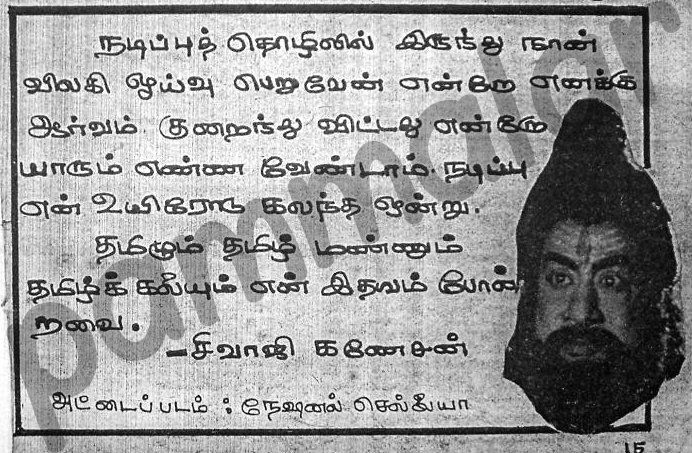 நடிப்புத் தொழிலில் இருந்து நான்
விலகி ஓய்வு பெறுவேன் என்றோ எனக்கு
ஆர்வம் குறைந்து விட்டது என்றோ
யாரும் எண்ண வேண்டாம். நடிப்பு
என் உயிரோடு கலந்த ஒன்று.
தமிழும் தமிழ் மண்ணும்
தமிழ்க் கலையும் என் இதயம் போன்
றவை.
-சிவாஜி கணேசன்
அட்டைப்படம் : நேஷனல் செல்லையா
15
pammalar